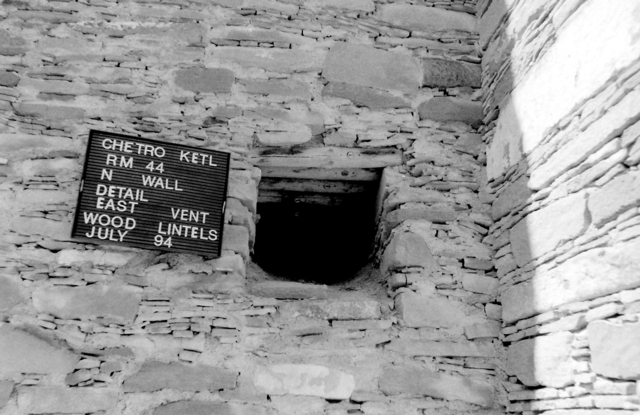 CHETRO KETL
RM 44
N WALL
DETAIL
EAST VENT
WOOD LINTELS
JULY 94